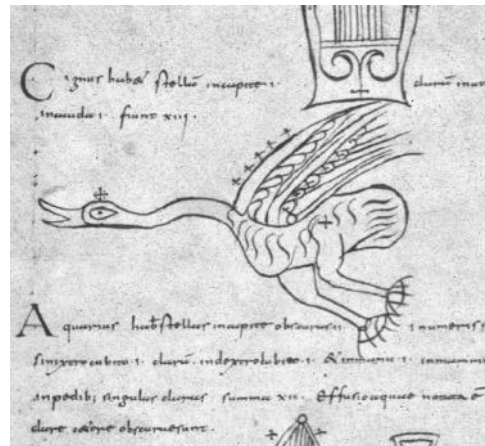 Cignus habet stellam incapite i. claram inuna
incauda i. fiunt xiii.
Aquarius hab& stellas incapite obscuras ii. inumeris s
sinixtro cubito i. claram. indextro i. & inmanu i. inmammi
inpedib; singulas claras summa xii. Effusio aquae notata ē
clare caetere obscurae sunt.